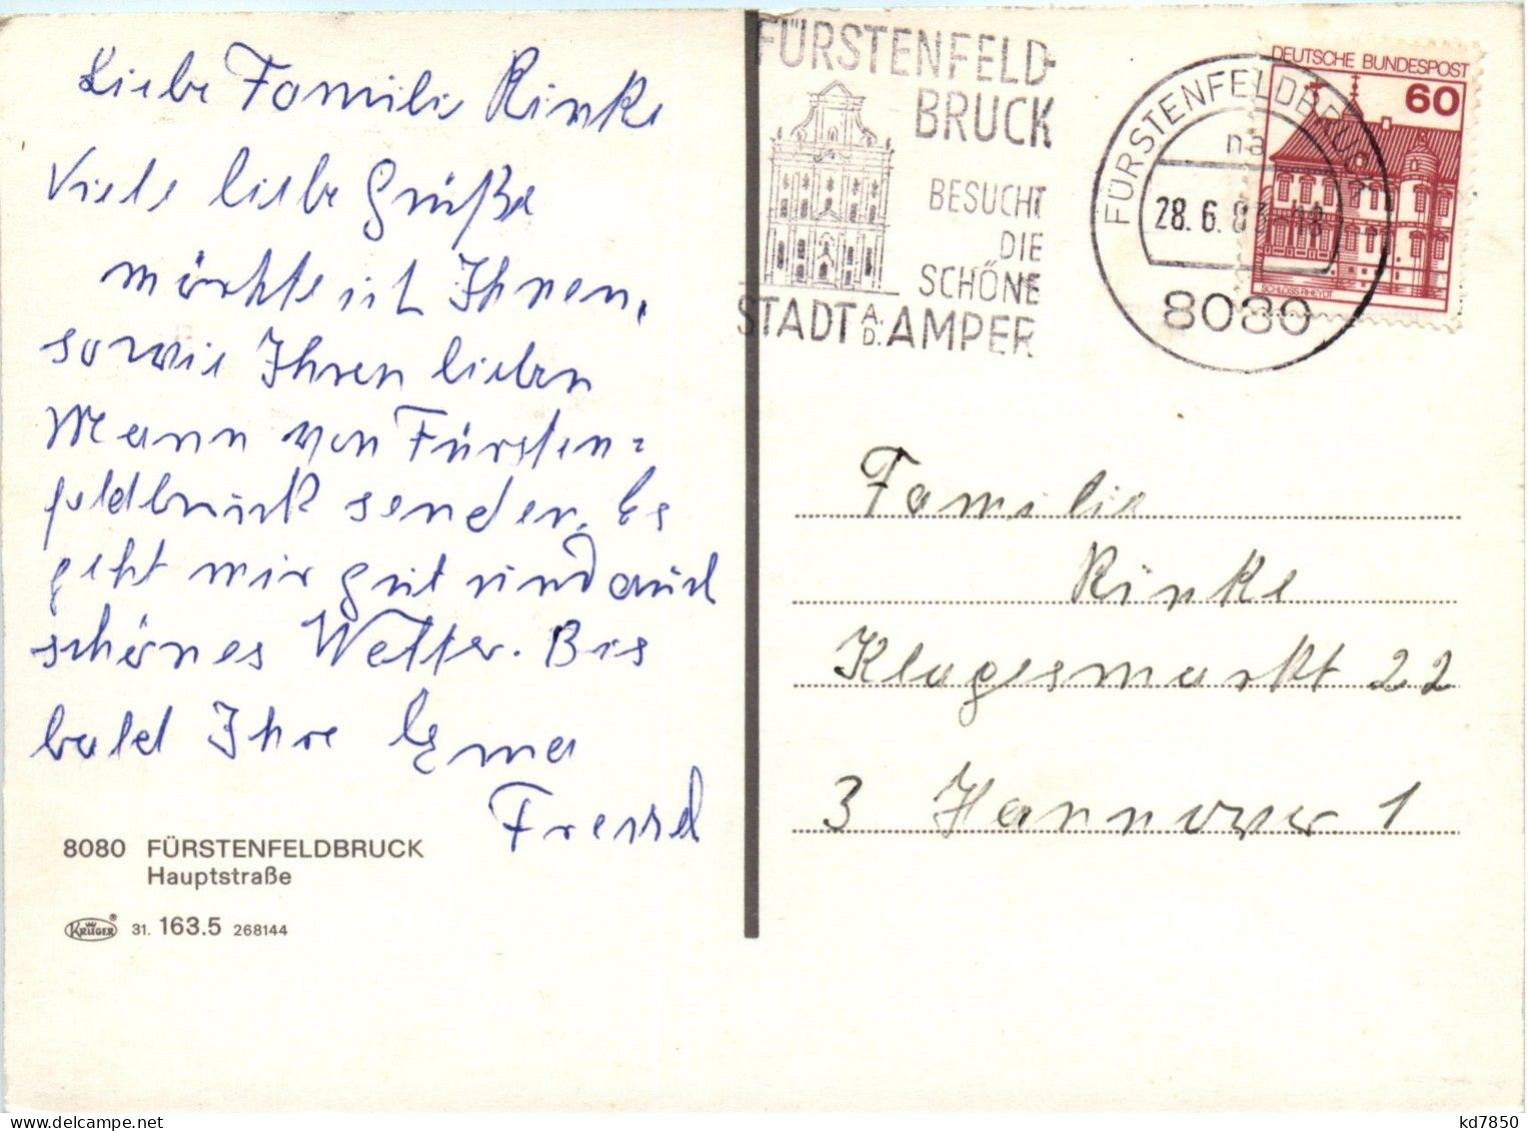 Liebe Familie Rinke
Viele liebe Grüße
möchte ich Ihnen,
sowie Ihren lieben
Mann von Fürsten=
feldbruck senden. Es
geht mir gut und auch
schönes Wetter. Bis
bald Ihre
8080 FÜRSTENFELDBRUCK
Hauptstraße
KRÜGER ® 31. 163.5 268144
FÜRSTENFELD-
BRUCK
BESUCHT
DIE
SCHÖNE
STADT A. D. AMPER
FÜRSTENFELDBRUCK
na
28. 6. 83-18
8080
DEUTSCHE BUNDESPOST
60
SCHLOSS RHEYDT
Familie
Rinke
Klagesmarkt 22
3 Hannover 1
kd7850